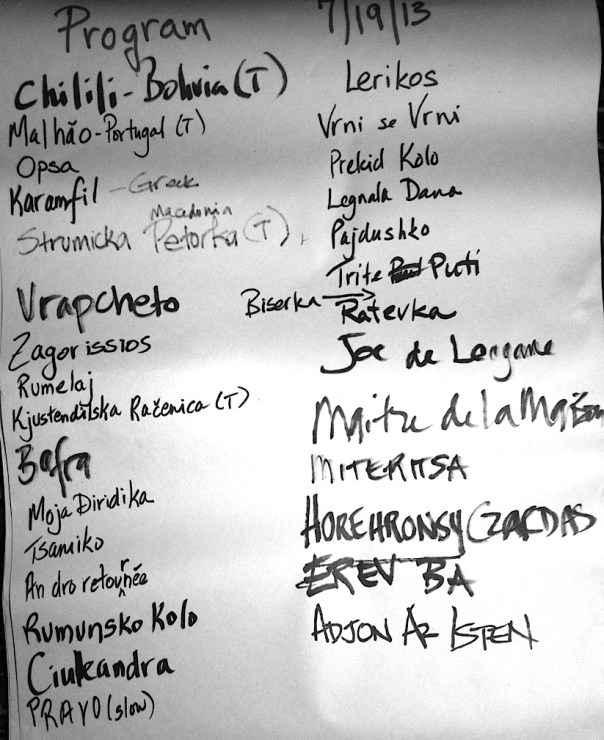 Program
7/19/13
Chilili-Bolivia (T)
Malhão-Portugal (T)
Opsa
Karamfil - Greek
Macedonia
Strumicka Petorka (T)
Vrapcheto
Zagorissios
Rumelaj
Kjustendilska Račenica (T)
Bafra
Moja Diridika
Tsamiko
An dro retournée
Rumunsko Kolo
Ciuleandra
PRAVO (slow)
Lerikos
Vrni se Vrni
Prekid Kolo
Legnala Dana
Pajdushko
Trite Puti
Biserka
Ratevka
Joc de Leagane
Maitre de la Maison
MITERITSA
HOREHRONSY CZARDAS
EREV BA
ADJON AZ ISTEN